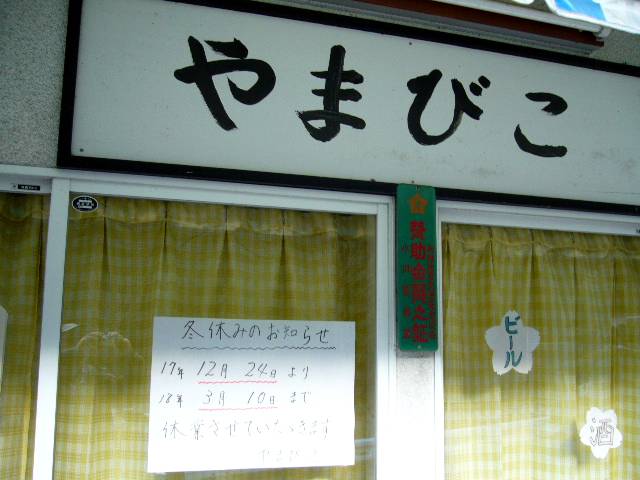 やまびこ
冬休みのお知らせ
17年 12月 24日 より
18年 3月 10日 まで
休業させていただきます
やまびこ
賛助会員之証
ビール
酒